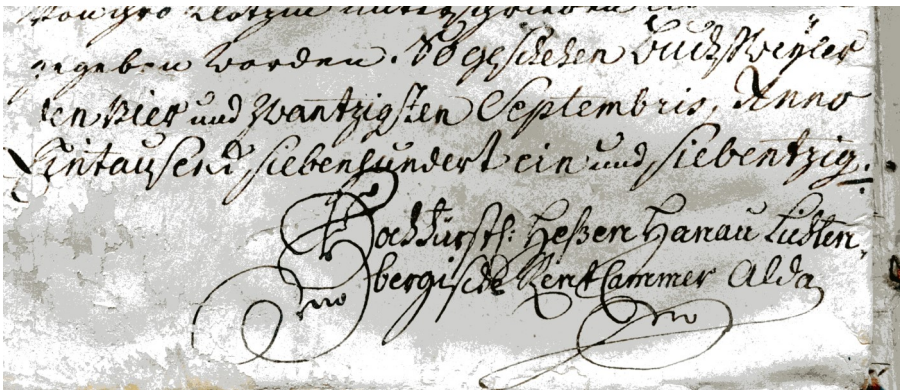 gegeben worden. So geschehen Buchsweyler
den Vier und Zwantzigsten Septembris, Anno
Eintausend, siebenhundert ein und siebentzig.
Hochfürstl: Heßen Hanau Lichten-
bergische Rent Cammer Alda